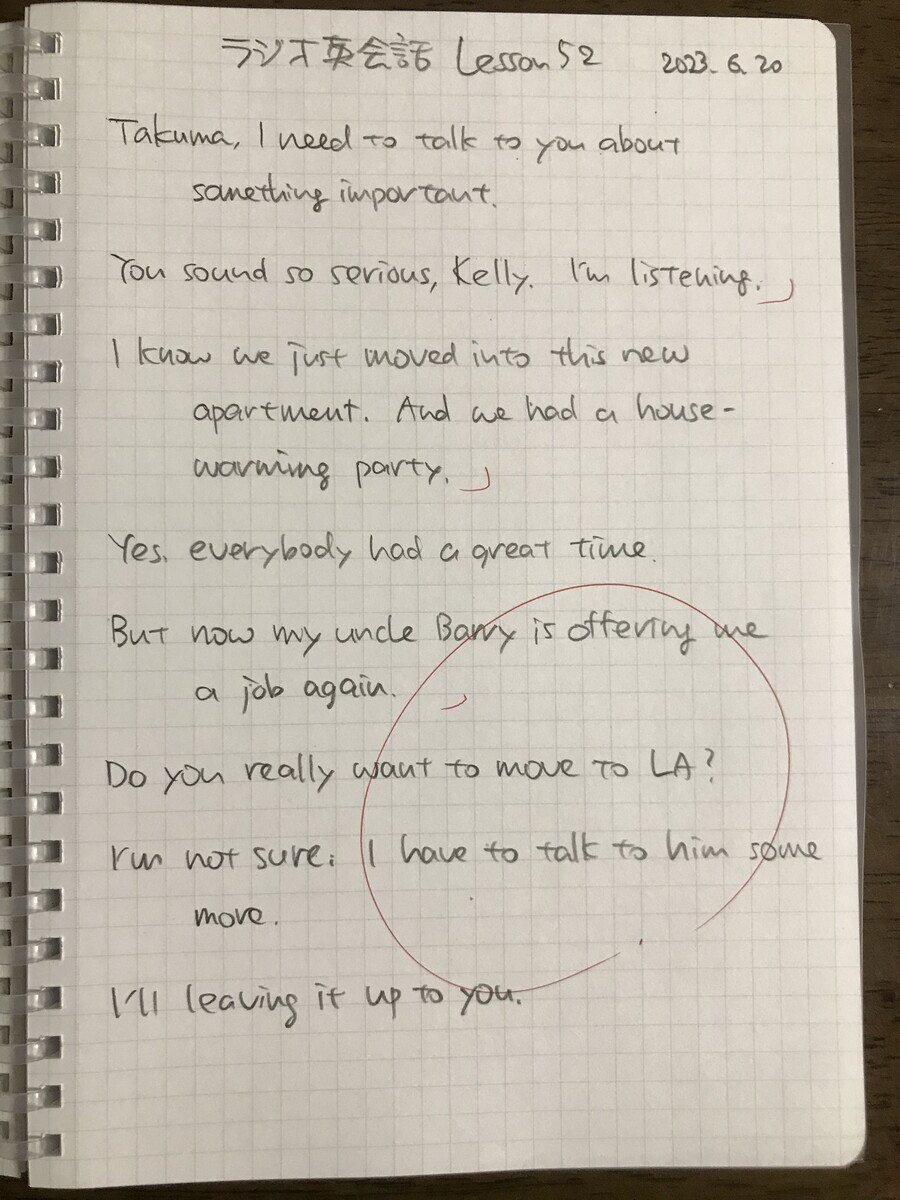 ラジオ英会話 Lesson 52 2023. 6. 20
Takuma, I need to talk to you about
something important.
You sound so serious, Kelly. I'm listening.
I know we just moved into this new
apartment. And we had a house-
warming party.
Yes. everybody had a great time.
But now my uncle Barry is offering me
a job again.
Do you really want to move to LA?
I'm not sure. I have to talk to him some
more.
I'll leaving it up to you.